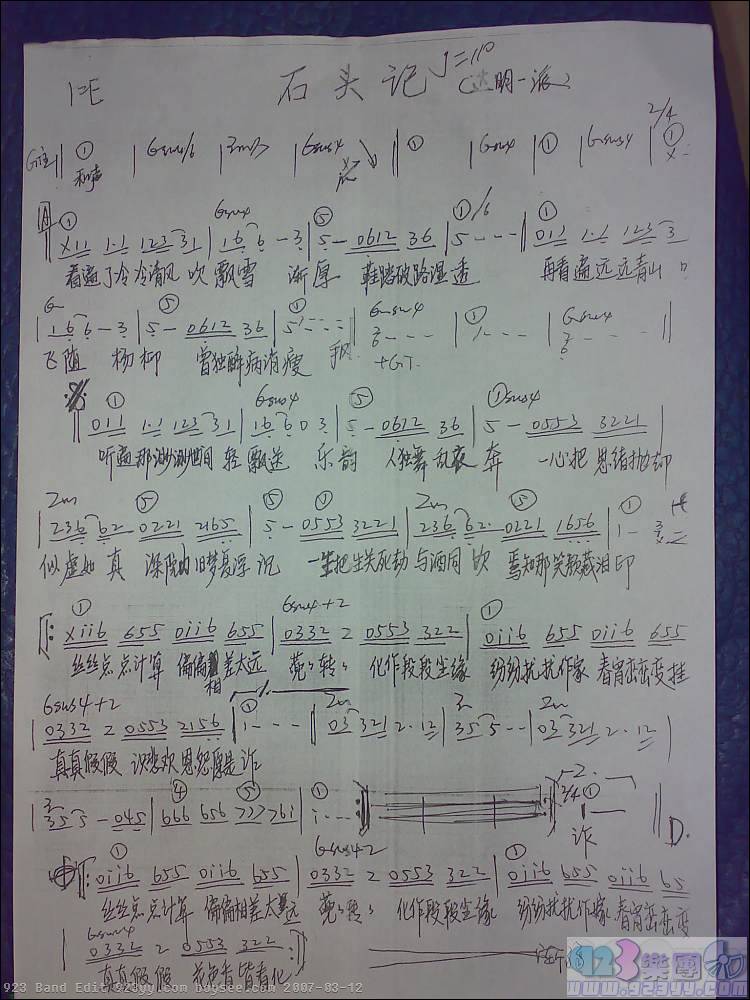 1=E 石头记 ♩=110
(达明一派)
2/4
① | Gsus/6 | 2m7 | Gsus4 | ① | Gsus4 | ① | Gsus4 | ①
和声
A ① Gsus4 ⑤ ①/6 ①
X11 1·1 123 31 | 16 6 - 3 | 5 - 0612 36 | 5 - - - | 011 1·1 123 3
看遍了冷冷清风吹飘雪 渐厚 鞋踏破路湿透 再看遍远远青山
⑤ ① Gsus4 ① Gsus4
| 16 6 - 3 | 5 - 0612 36 | 5 - - -
飞随 杨柳 曾独醉病消瘦 +GT.
① Gsus4 ⑤ ①sus4
011 1·1 123 31 | 16 6 0 3 | 5 - 0612 36 | 5 - 0553 3221 |
听遍那渺渺世间轻飘送 乐韵 人独舞乱衣奔 一心把思绪抛却
2m ⑤ ⑤ ① 2m ⑤ ①
| 236 62 - 0221 2165 | 5 - 0553 3221 | 236 62 - 0221 1656 | 1 -
似虚如真 深院内旧梦复浮记 一生把生关死劫与酒同饮 焉知那笑靥藏泪印
① Gsus4+2 ①
Xii6 655 0ii6 655 | 0332 2 0553 322 | 0ii6 655 0ii6 655
丝丝点点计算 偏偏相差太远 兜兜转转 化作段段尘缘 纷纷扰扰作嫁 春宵恋恋变挂
Gsus4+2 ① 2m 3 2m
| 0332 2 0553 2156 | i - - - | 03 321 2·12 | 35 5 - - | 03 321 2·12 |
真真假假 识悲欢恩怨原是诈
3 ④ ⑤ ① 2. 2/4 ①
| 35 5 - 045 | 666 656 777 76i | i - - -
诈 D.
① Gsus4-2 ①
0ii6 655 0ii6 655 | 0332 2 0553 322 | 0ii6 655 0ii6 65
丝丝点点计算 偏偏相差太远 兜兜转转 化作段段尘缘 纷纷扰扰作嫁 春宵恋恋变
Gsus4
| 0332 2 0553 322 :||
真真假假 花色香皆看化
923樂團
www.923yy.com
923 Band Edit 923yy.com boysee1.com 2007-03-12